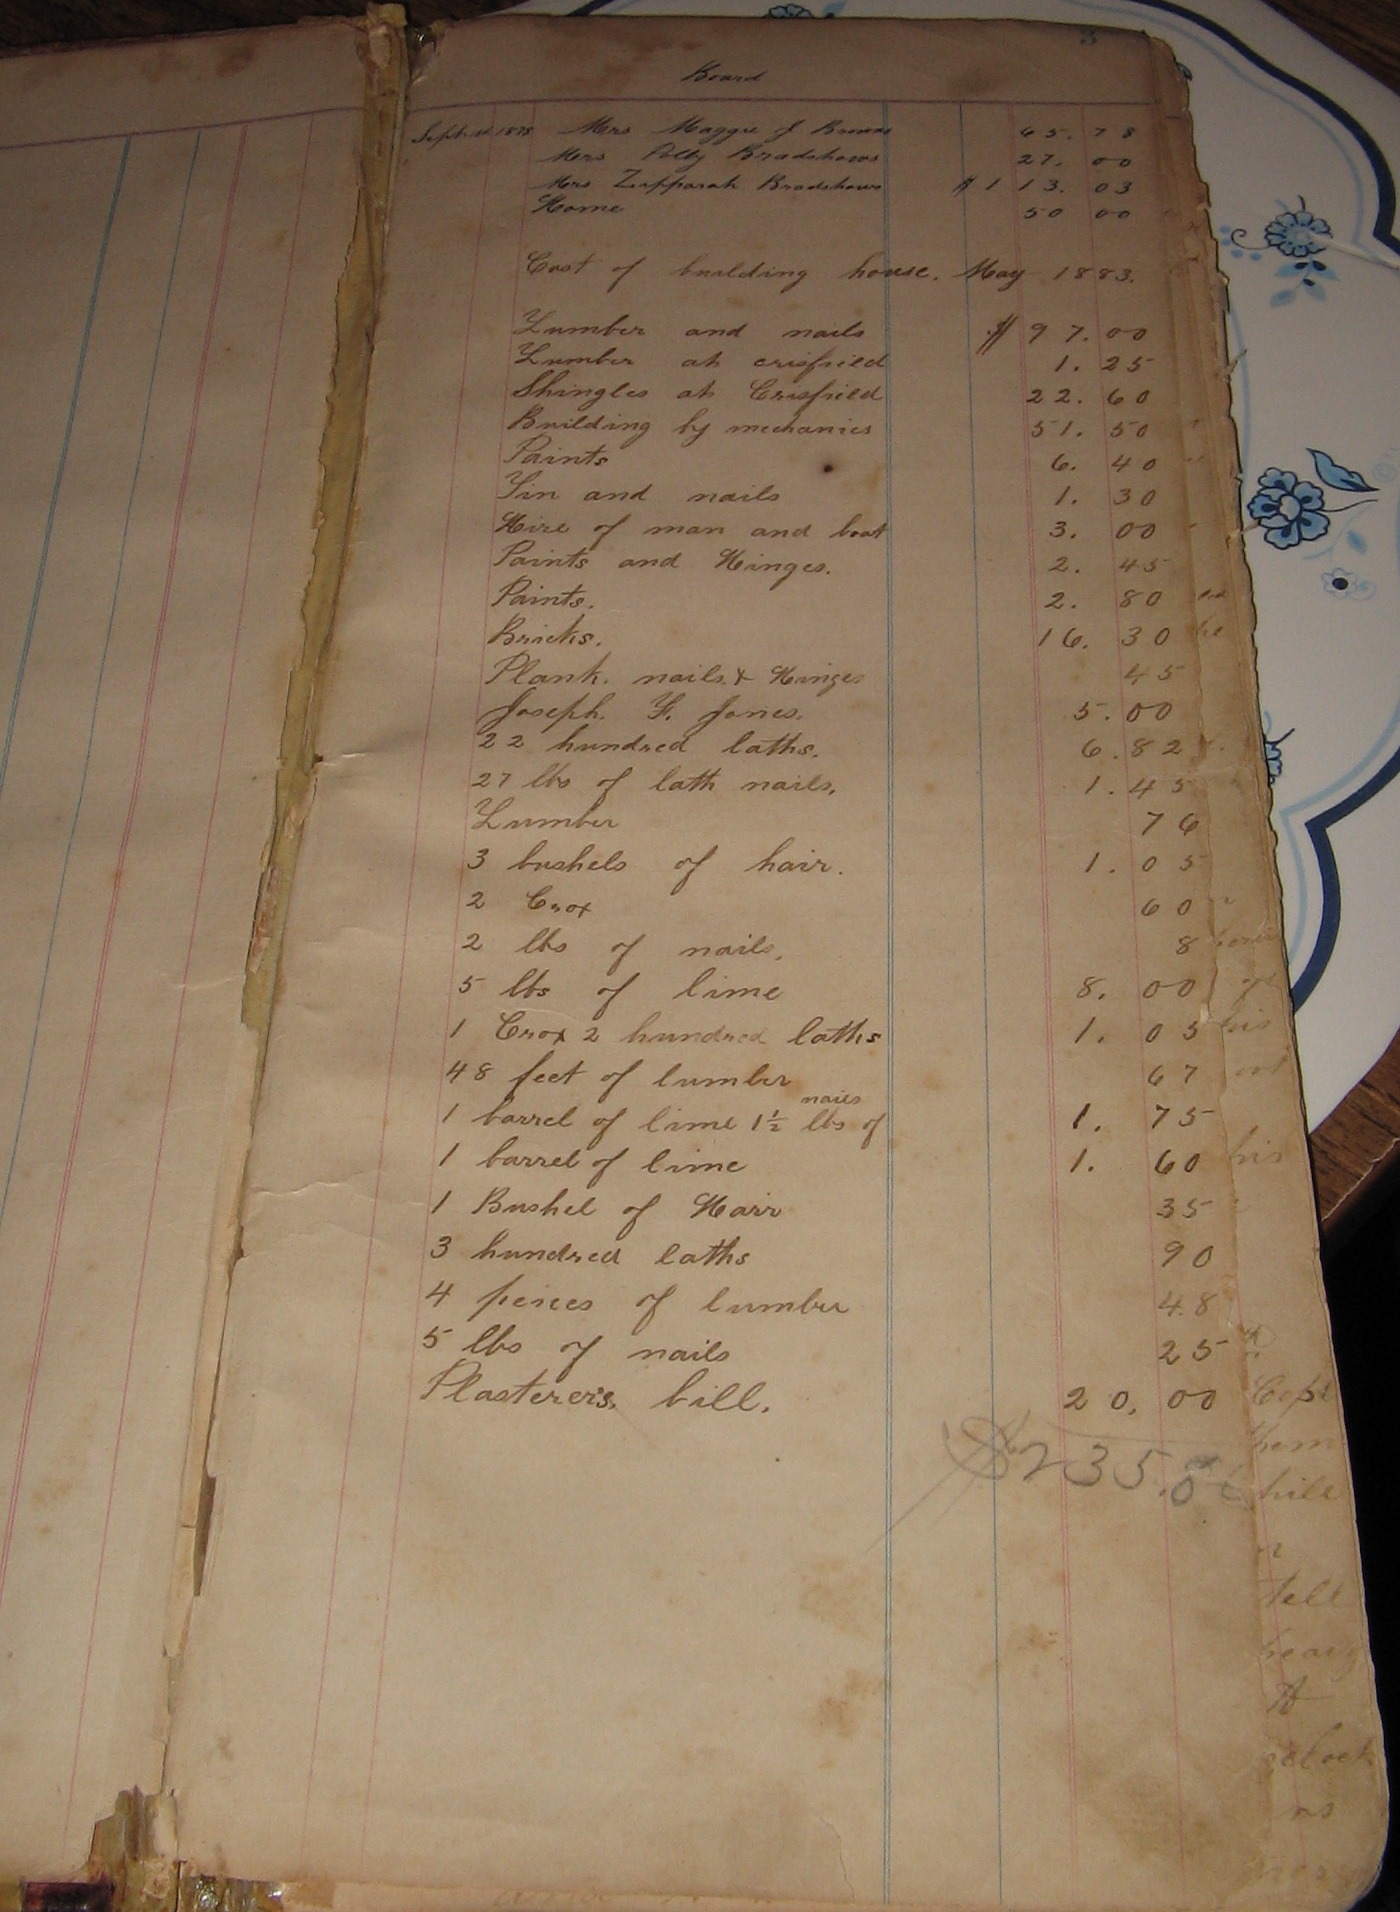 3
Board
Sept. 1st 1878 Mrs Maggie J Browne 65.78
Mrs Polly Bradshaws 27.00
Mrs Zipparah Bradshaws $113.03
Home 50 00
Cost of building house. May 1883.
Lumber and nails $97.00
Lumber at crisfield 1.25
Shingles at Crisfield 22.60
Building by mechanics 51.50
Paints 6.40
Tin and nails 1.30
Hire of man and boat 3.00
Paints and Hinges. 2.45
Paints. 2.80
Bricks. 16.30
Plank. nails. & Hinges 45
Joseph. F. Jones. 5.00
22 hundred laths. 6.82
27 lbs of lath nails. 1.45
Lumber 76
3 bushels of hair. 1.05
2 Crox 60
2 lbs of nails. 8
5 lbs of lime 8.00
1 Crox 2 hundred laths 1.05
48 feet of lumber 67
nails
1 barrel of lime 1½ lbs of 1.75
1 barrel of lime 1.60
1 Bushel of Hair 35
3 hundred laths 90
4 peices of lumber 48
5 lbs of nails 25
Plasterers. bill. 20.00
$235.0
his
his
Capt
them
hile
tell